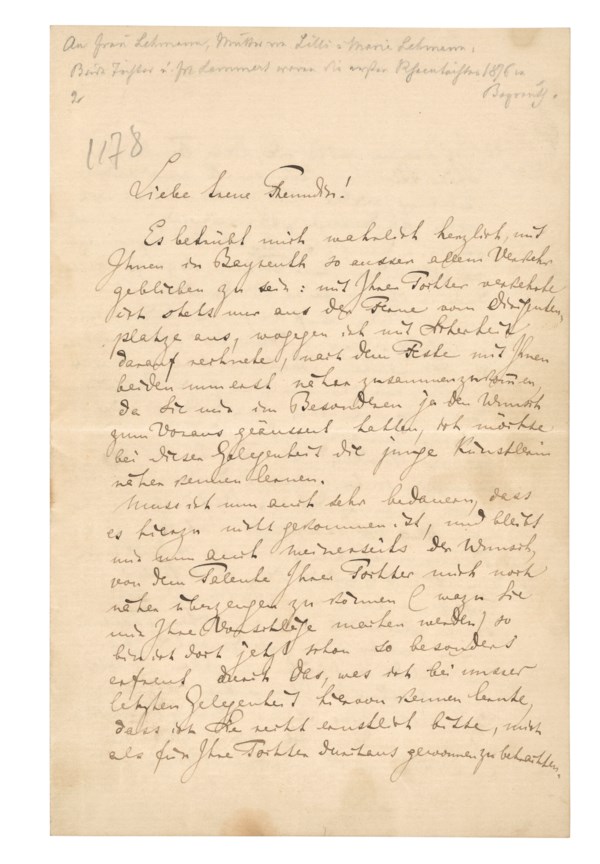 An Frau Lehmann, Mutter von Lilli u Marie Lehmann.
Beide Töchter u. Frl Lammert waren die ersten Rheintöchter 1876 in
Bayreuth.
1178
Liebe treue Freundin!
Es betrübt mich wahrlich herzlich, mit
Ihnen in Bayreuth so ausser allem Verkehr
geblieben zu sein: mit Ihrer Tochter verkehrte
ich stets nur aus der Ferne vom Dirigenten
platze aus, wogegen ich mit Sicherheit
darauf rechnete, nach dem Feste mit Ihnen
beiden nun erst näher zusammenzukom̄en,
da Sie mir im Besonderen ja den Wunsch
zum Voraus geäussert hatten, ich möchte
bei dieser Gelegenheit die junge Künstlerin
näher kennen lernen.
Muss ich nun auch sehr bedauern, dass
es hierzu nicht gekommen ist, und bleibt
mir nun auch meinerseits der Wunsch,
von dem Talente Ihrer Tochter mich noch
näher überzeugen zu können (wozu Sie
mir Ihre Vorschläge machen werden) so
bin ich doch jetzt schon so besonders
erfreut durch Das, was ich bei unsrer
letzten Gelegenheit hiervon kennen lernte,
dass ich Sie recht ernstlich bitte, mich
als für Ihre Tochter durchaus gewonnen zu betrachten.